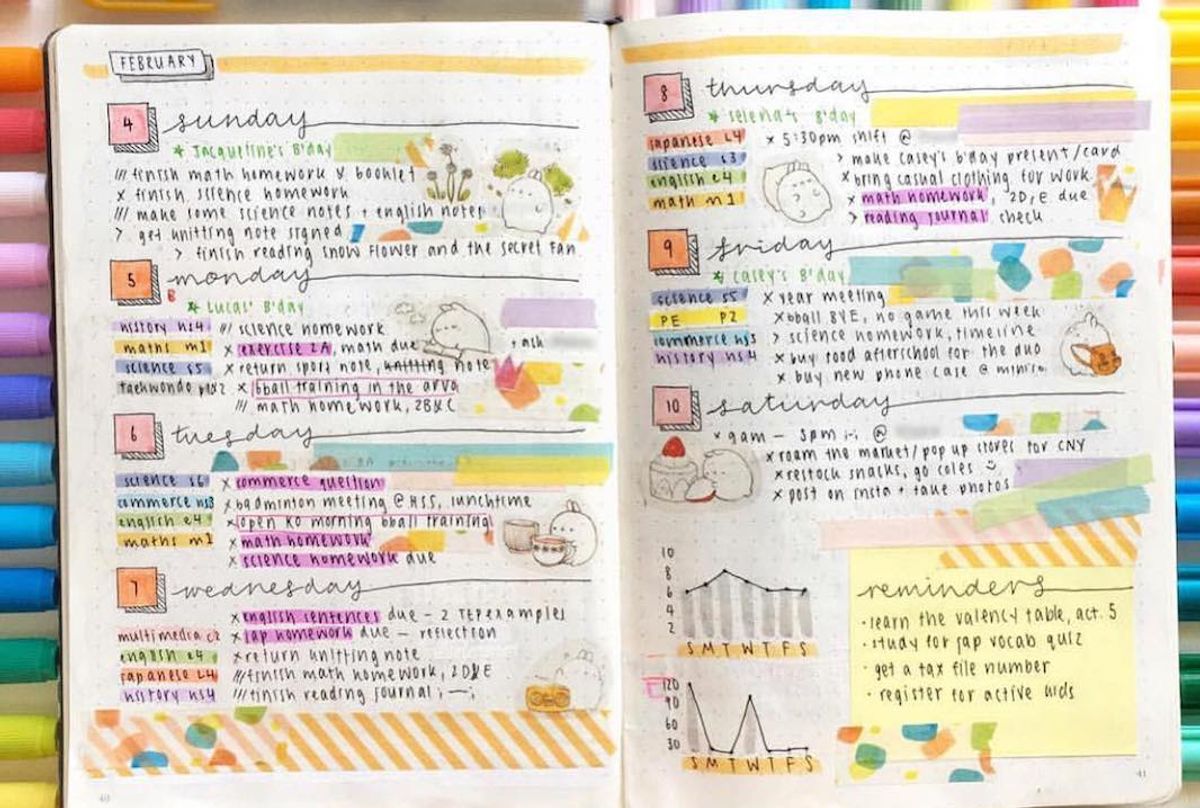 FEBRUARY
4 sunday
* Jacqueline's B'day
/// finish math homework & booklet
x finish science homework
/// make some science notes + english notes
> get knitting note signed
> finish reading snow flower and the secret fan
5 monday
B
* Lucas' B'day
history hs4 /// science homework
maths m1 x exercise 2A, math due
+ ask
science s5 x return sport note, knitting note
taekwondo x bball training in the arvo
/// math homework, 2B&C
6 tuesday
science s6 x commerce question
commerce hs3 x badminton meeting @ HSS, lunchtime
english e4 x open KO morning bball training
maths m1 x math homework
x science homework due
7 wednesday
x english sentences due - 2 examples
multimedia c2 x jap homework due - reflection
english e4 x return knitting note
japanese L4 /// finish math homework, 2D&E
history hs4 /// finish reading journal ; - ;
40
8 thursday
* Selena's B'day
japanese L4 x 5:30pm shift @
science s3 > make casey's b'day present/card
english e4 x bring casual clothing for work
math m1 x math homework, 2D,E due
> reading journal check
9 friday
* Casey's B'day
science s5 x year meeting
PE P2 x bball BYE, no game this week
commerce hs3 > science homework, timeline
history hs4 x buy food afterschool for the duo
x buy new phone case @ miniso
10 saturday
x 9am - 3pm @
x roam the market/pop up stores for CNY
x restock snacks, go coles
x post on insta + take photos
10
8
6
4
2
S M T W T F S
120
90
60
30
S M T W T F S
reminders
· learn the valency table, act. 5
· study for jap vocab quiz
· get a tax file number
· register for active kids
41